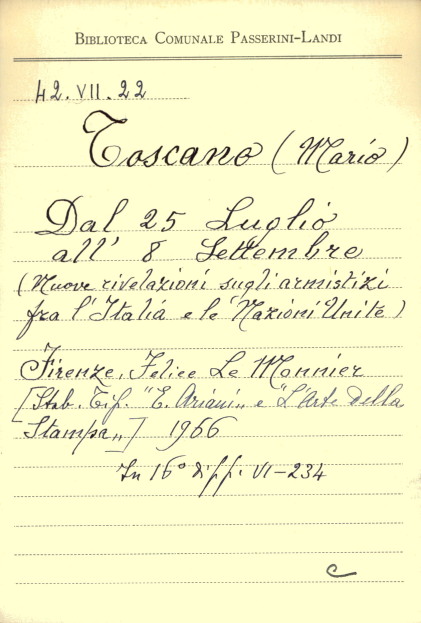 BIBLIOTECA COMUNALE PASSERINI-LANDI
42.VII.22
Toscano (Mario)
Dal 25 Luglio
all' 8 Settembre
(Nuove rivelazioni sugli armistizi
fra l'Italia e le Nazioni Unite)
Firenze, Felice Le Monnier
[Stab. Tip. "E. Ariani„ e "L'Arte della
Stampa„] 1966
In 16° di pp. VI-234
c